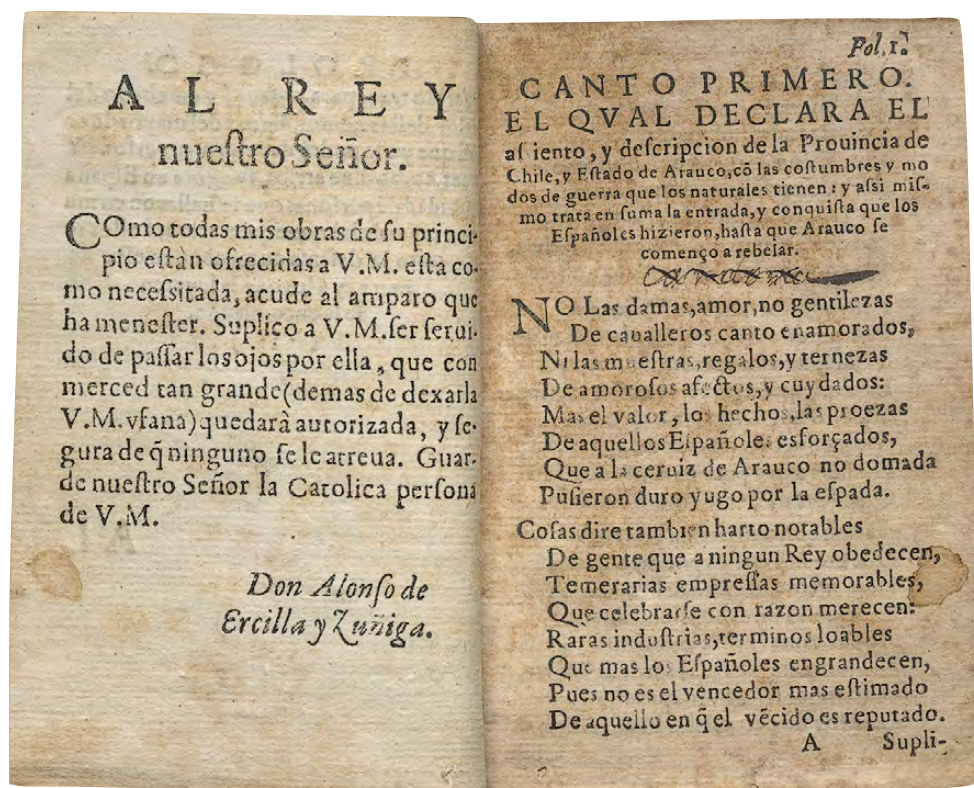 A L R E Y
nueſtro Señor.
COmo todas mis obras de ſu princi-
pio eſtàn ofrecidas a V.M. eſta co-
mo neceſsitada, acude al amparo que
ha meneſter. Suplico a V.M. ſer ſerui-
do de paſſar los ojos por ella, que con
merced tan grande (demas de dexarla
V.M. vfana) quedarà autorizada, y ſe-
gura de q̃ ninguno ſe le atreua. Guar-
de nueſtro Señor la Catolica perſona
de V.M.
Don Alonſo de
Ercilla y Zuñiga.
Fol. 1.
CANTO PRIMERO.
EL QVAL DECLARA EL
aſsiento, y deſcripcion de la Prouincia de
Chile, y Eſtado de Arauco, cõ las coſtumbres y mo
dos de guerra que los naturales tienen: y aſsi miſ-
mo trata en ſuma la entrada, y conquiſta que los
Eſpañoles hizieron, haſta que Arauco ſe
començo a rebelar.
NO Las damas, amor, no gentilezas
De caualleros canto enamorados,
Ni las mueſtras, regalos, y ternezas
De amoroſos afectos, y cuydados:
Mas el valor, los hechos, las proezas
De aquellos Eſpañoles esforçados,
Que a la ceruiz de Arauco no domada
Puſieron duro yugo por la eſpada.
Coſas dire tambien harto notables
De gente que a ningun Rey obedecen,
Temerarias empreſſas memorables,
Que celebrarſe con razon merecen:
Raras induſtrias, terminos loables
Que mas los Eſpañoles engrandecen,
Pues no es el vencedor mas eſtimado
De aquello en q̃ el vẽcido es reputado.
A Supli-